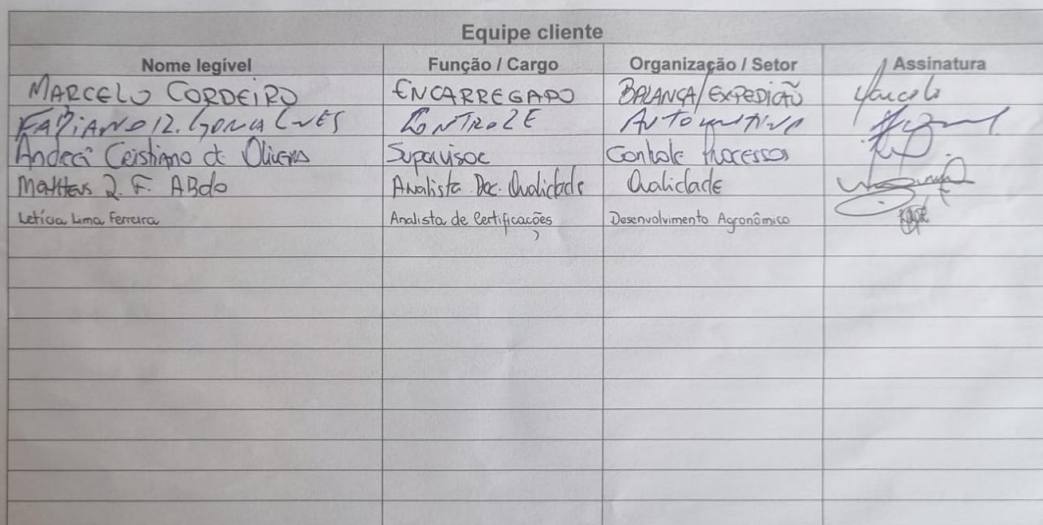 Equipe cliente
Nome legível Função / Cargo Organização / Setor Assinatura
MARCELO CORDEIRO ENCARREGADO BALANÇA/EXPEDIÇÃO Marcelo
FABIANO R. GONCALVES CONTROLE AUTOMOTIVA
Cristiano de Oliveira Supervisor Controle Processos
Mattheus Q. F. ABdo Analista Doc. Qualidade Qualidade
Letícia Lima Ferreira Analista de Certificações Desenvolvimento Agronômico